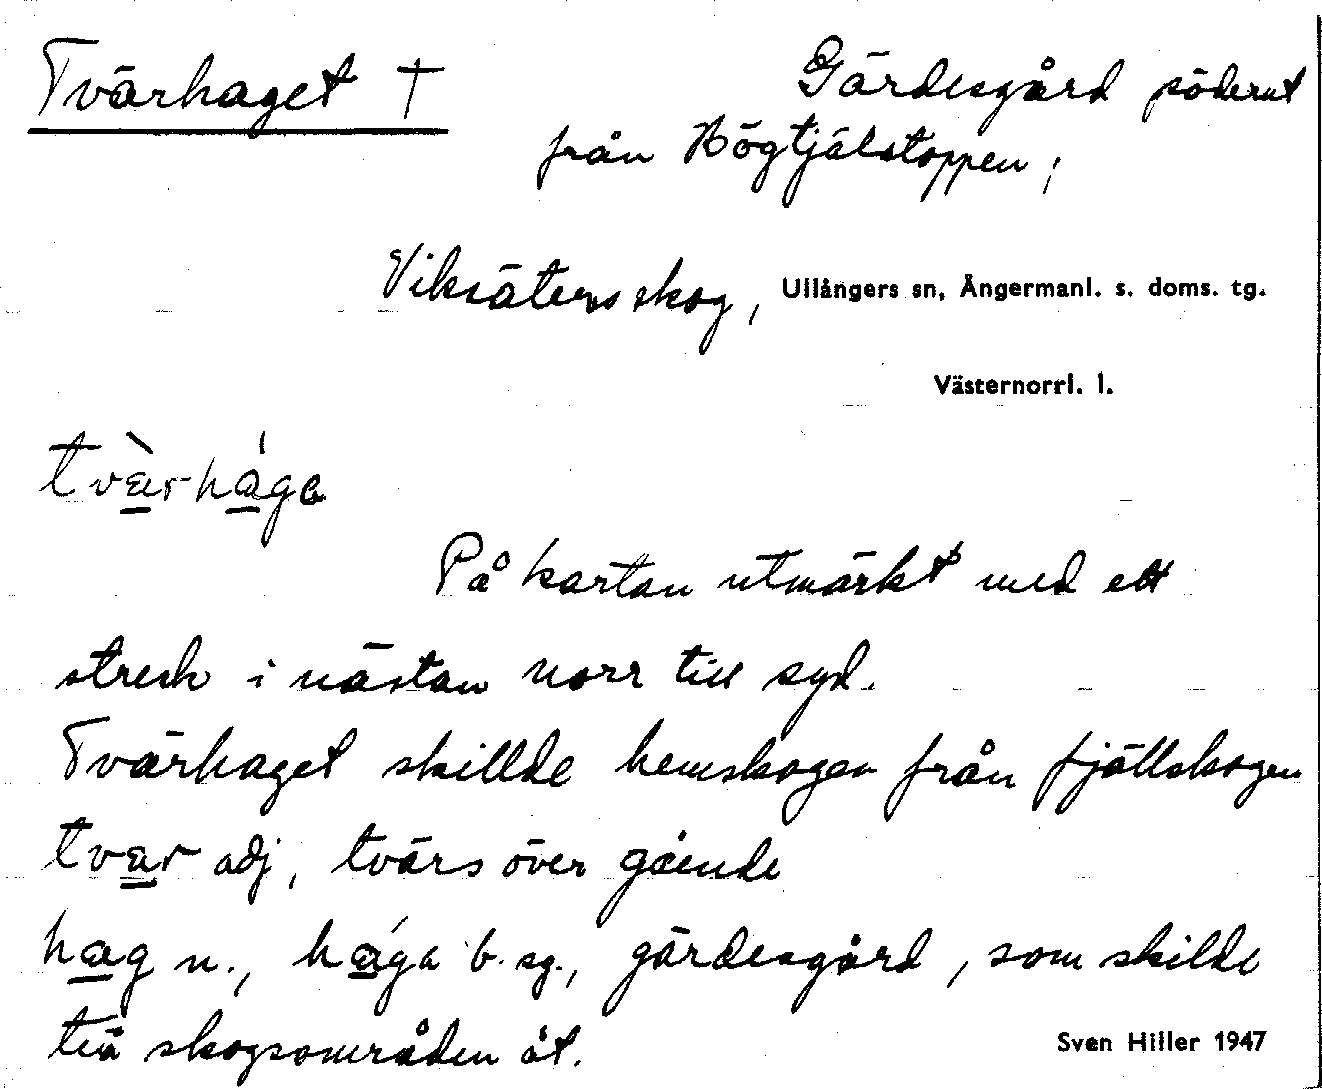 Tvärhaget † Gärdesgård söderut
från Högtjälstoppen,
Viksäters skog, Ullångers sn, Ångermanl. s. doms. tg.
Västernorrl. l.
tvàrhága
På kartan utmärkt med ett
streck i nästan norr till syd.
Tvärhaget skillde hemskogen från fjällskogen
tvar adj, tvärs över gående
hag n., hága b. sg., gärdesgård, som skilde
två skogsområden åt.
Sven Hiller 1947